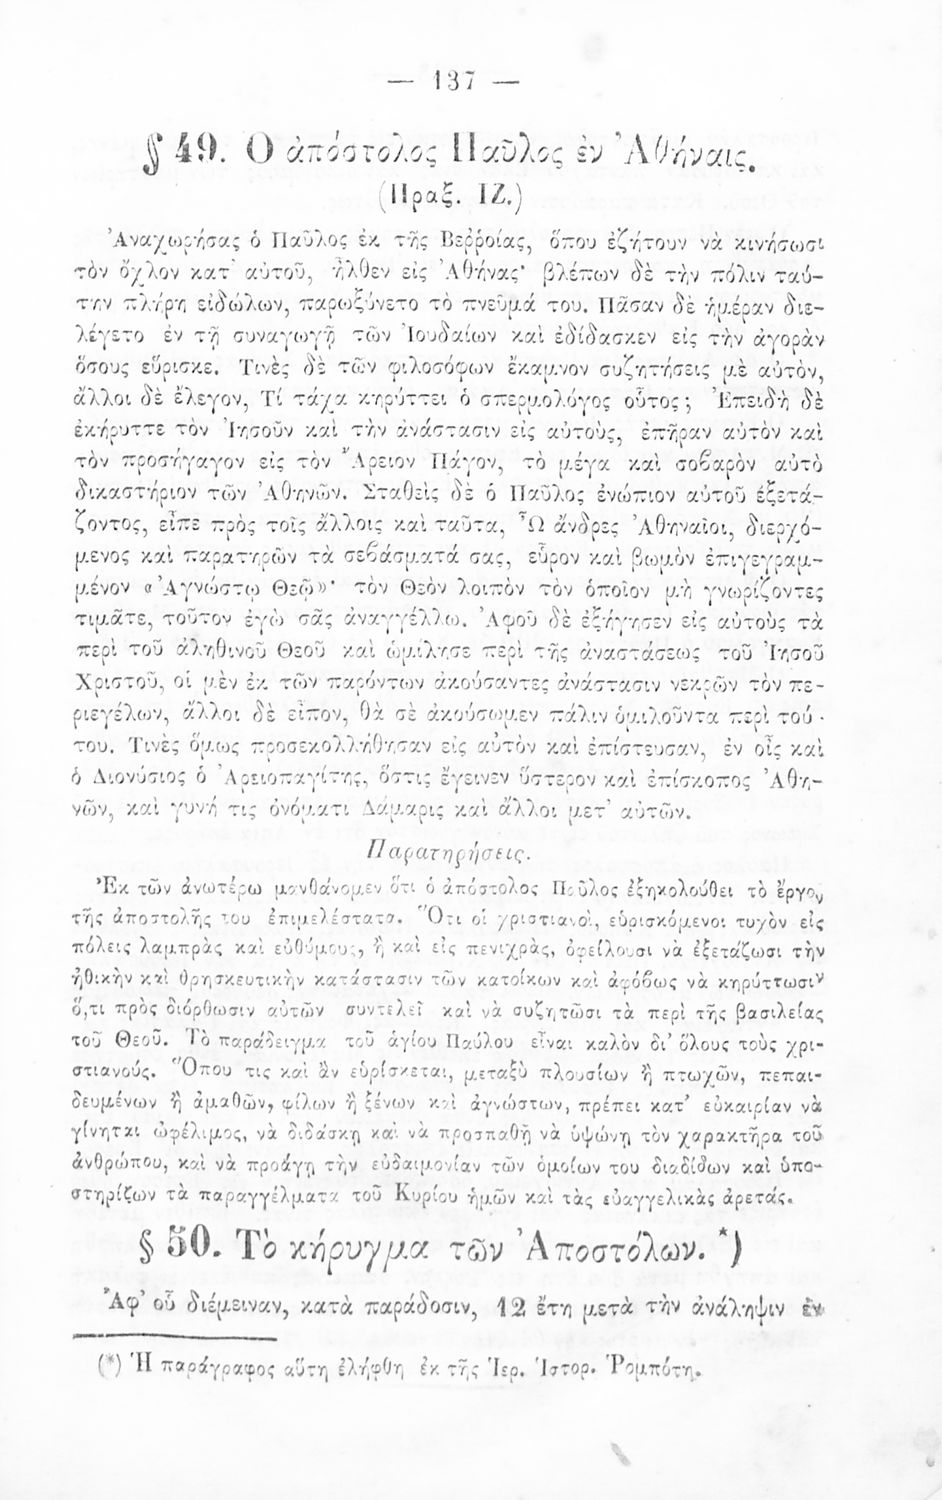 — 137 —
§ 49. Ὁ ἀπόστολος Παῦλος ἐν Ἀθήναις.
(Πραξ. ΙΖ.)
Ἀναχωρήσας ὁ Παῦλος ἐκ τῆς Βεῤῥοίας, ὅπου ἐζήτουν νὰ κινήσωσι
τὸν ὄχλον κατ' αὐτοῦ, ἦλθεν εἰς Ἀθήνας· βλέπων δὲ τὴν πόλιν ταύ-
την πλήρη εἰδώλων, παρωξύνετο τὸ πνεῦμά του. Πᾶσαν δὲ ἡμέραν διε-
λέγετο ἐν τῇ συναγωγῇ τῶν Ἰουδαίων καὶ ἐδίδασκεν εἰς τὴν ἀγορὰν
ὅσους εὕρισκε. Τινὲς δὲ τῶν φιλοσόφων ἔκαμνον συζητήσεις μὲ αὐτὸν,
ἄλλοι δὲ ἔλεγον, Τί τάχα κηρύττει ὁ σπερμολόγος οὗτος; Ἐπειδὴ δὲ
ἐκήρυττε τὸν Ἰησοῦν καὶ τὴν ἀνάστασιν εἰς αὐτοὺς, ἐπῆραν αὐτὸν καὶ
τὸν προσήγαγον εἰς τὸν Ἄρειον Πάγον, τὸ μέγα καὶ σοβαρὸν αὐτὸ
δικαστήριον τῶν Ἀθηνῶν. Σταθεὶς δὲ ὁ Παῦλος ἐνώπιον αὐτοῦ ἐξετά-
ζοντος, εἶπε πρὸς τοῖς ἄλλοις καὶ ταῦτα, Ὦ ἄνδρες Ἀθηναῖοι, διερχό-
μενος καὶ παρατηρῶν τὰ σεβάσματά σας, εὗρον καὶ βωμὸν ἐπιγεγραμ-
μένον «Ἀγνώστῳ Θεῷ»· τὸν Θεὸν λοιπὸν τὸν ὁποῖον μὴ γνωρίζοντες
τιμᾶτε, τοῦτον ἐγὼ σᾶς ἀναγγέλλω. Ἀφοῦ δὲ ἐξήγησεν εἰς αὐτοὺς τὰ
περὶ τοῦ ἀληθινοῦ Θεοῦ καὶ ὡμίλησε περὶ τῆς ἀναστάσεως τοῦ Ἰησοῦ
Χριστοῦ, οἱ μὲν ἐκ τῶν παρόντων ἀκούσαντες ἀνάστασιν νεκρῶν τὸν πε-
ριεγέλων, ἄλλοι δὲ εἶπον, θὰ σὲ ἀκούσωμεν πάλιν ὁμιλοῦντα περὶ τού-
του. Τινὲς ὅμως προσεκολλήθησαν εἰς αὐτὸν καὶ ἐπίστευσαν, ἐν οἷς καὶ
ὁ Διονύσιος ὁ Ἀρειοπαγίτης, ὅστις ἔγεινεν ὕστερον καὶ ἐπίσκοπος Ἀθη-
νῶν, καὶ γυνή τις ὀνόματι Δάμαρις καὶ ἄλλοι μετ' αὐτῶν.
Παρατηρήσεις.
Ἐκ τῶν ἀνωτέρω μανθάνομεν ὅτι ὁ ἀπόστολος Παῦλος ἐξηκολούθει τὸ ἔργον
τῆς ἀποστολῆς του ἐπιμελέστατα. Ὅτι οἱ χριστιανοὶ, εὑρισκόμενοι τυχὸν εἰς
πόλεις λαμπρὰς καὶ εὐθύμους, ἢ καὶ εἰς πενιχρὰς, ὀφείλουσι νὰ ἐξετάζωσι τὴν
ἠθικὴν καὶ θρησκευτικὴν κατάστασιν τῶν κατοίκων καὶ ἀφόβως νὰ κηρύττωσιν
ὅ,τι πρὸς διόρθωσιν αὐτῶν συντελεῖ καὶ νὰ συζητῶσι τὰ περὶ τῆς βασιλείας
τοῦ Θεοῦ. Τὸ παράδειγμα τοῦ ἁγίου Παύλου εἶναι καλὸν δι' ὅλους τοὺς χρι-
στιανούς. Ὅπου τις καὶ ἂν εὑρίσκεται, μεταξὺ πλουσίων ἢ πτωχῶν, πεπαι-
δευμένων ἢ ἀμαθῶν, φίλων ἢ ξένων καὶ ἀγνώστων, πρέπει κατ' εὐκαιρίαν νὰ
γίνηται ὠφέλιμος, νὰ διδάσκῃ καὶ νὰ προσπαθῇ νὰ ὑψώνῃ τὸν χαρακτῆρα τοῦ
ἀνθρώπου, καὶ νὰ προάγῃ τὴν εὐδαιμονίαν τῶν ὁμοίων του διαδίδων καὶ ὑπο-
στηρίζων τὰ παραγγέλματα τοῦ Κυρίου ἡμῶν καὶ τὰς εὐαγγελικὰς ἀρετάς.
§ 50. Τὸ κήρυγμα τῶν Ἀποστόλων. *)
Ἀφ' οὗ διέμειναν, κατὰ παράδοσιν, 12 ἔτη μετὰ τὴν ἀνάληψιν ἐν
(*) Ἡ παράγραφος αὕτη ἐλήφθη ἐκ τῆς Ἱερ. Ἱστορ. Ῥομπότη.